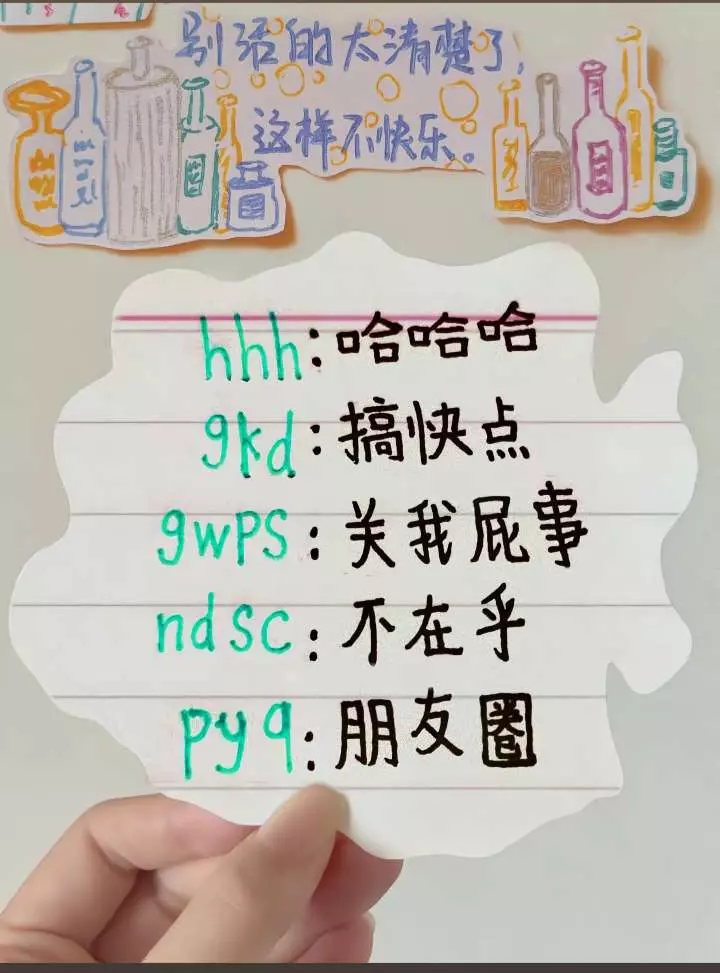 别活的太清楚了,
这样不快乐。
hhh:哈哈哈
gkd:搞快点
gwps:关我屁事
ndsc:不在乎
pyq:朋友圈